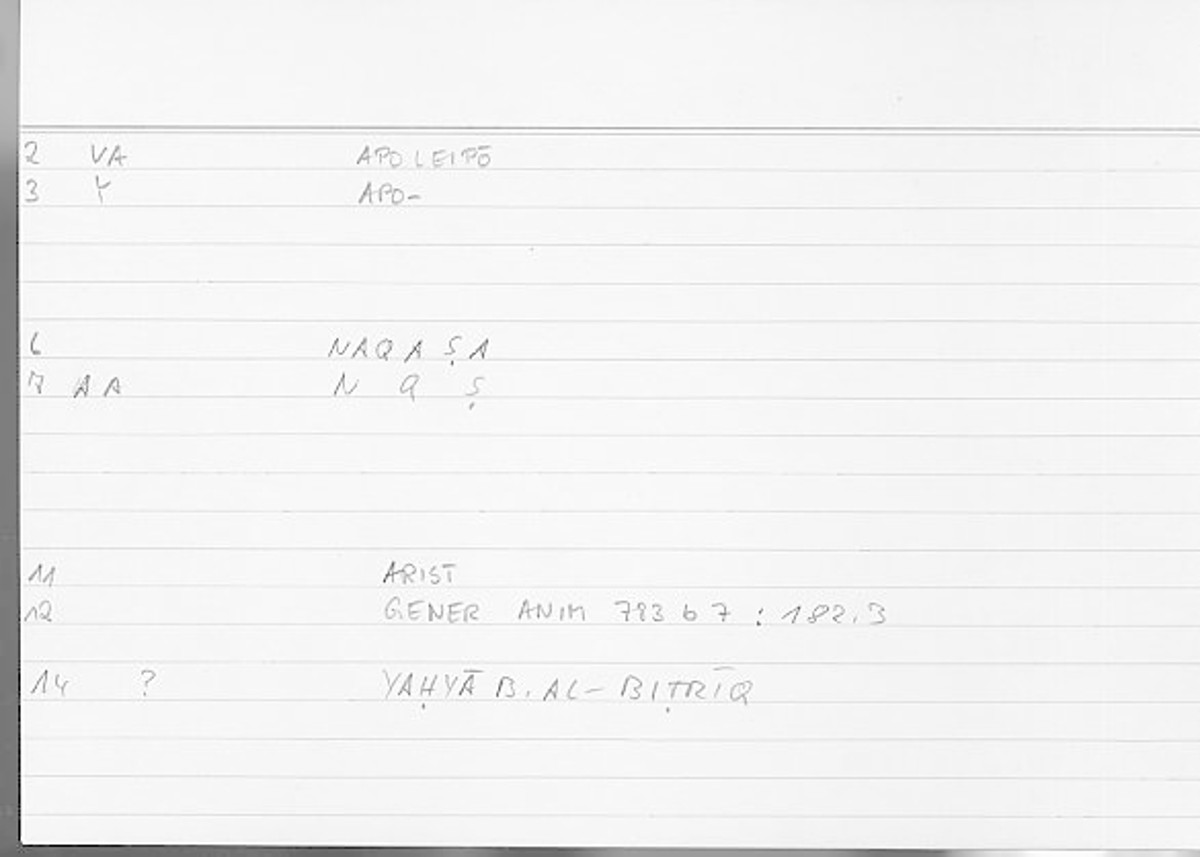 2 VA APOLEIPŌ
3 Y APO-
6 NAQAṢA
7 AA N Q Ṣ
11 ARIST
12 GENER ANIM 783 b 7 : 182.3
14 ? YAḤYĀ B. AL-BIṬRĪQ